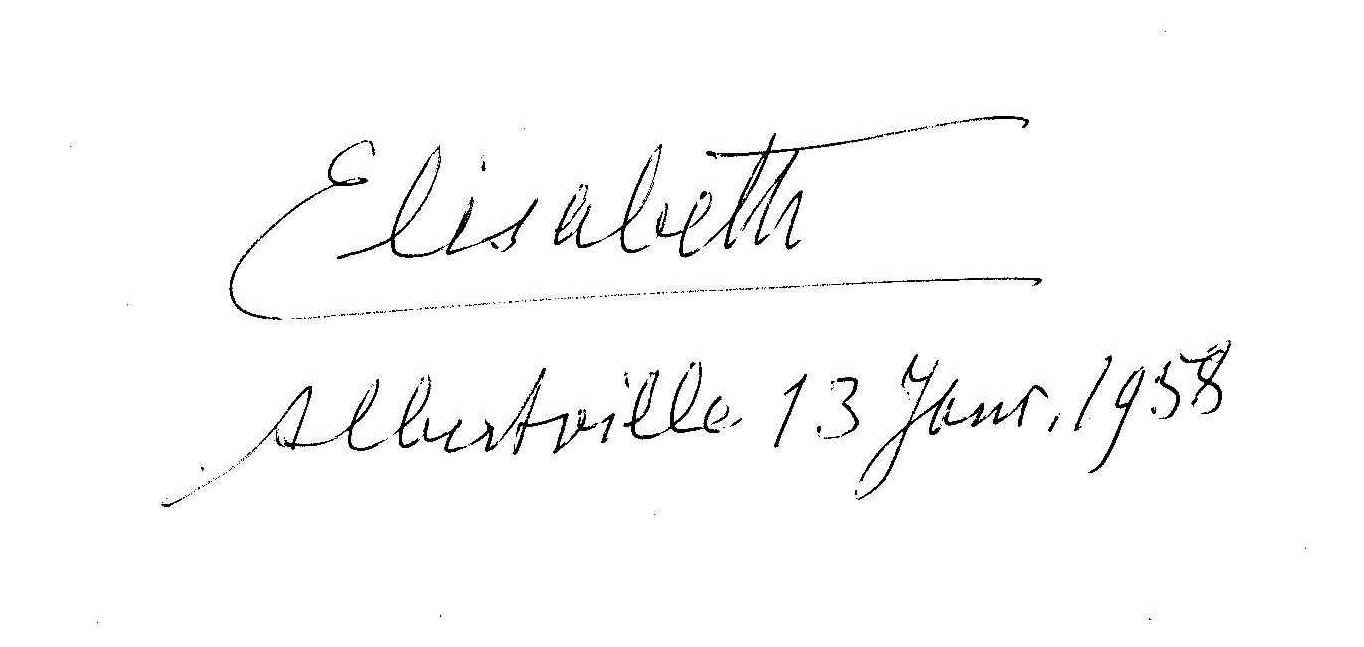 Elisabeth
Albertville 13 Janv. 1958